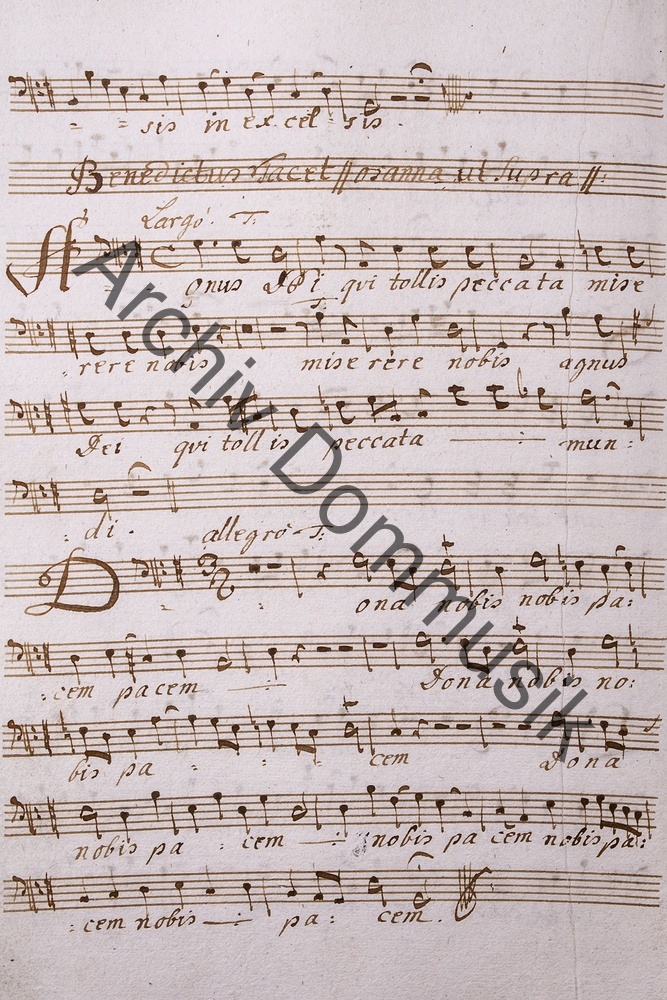 = = sis in ex cel = sis.
Benedictus Tacet || osanna ut Supra ||:
Largo. T.
A = gnus Dei qui tollis peccata mise
rere nobis mise rere nobis agnus
Dei qui tollis peccata mun =
= di. allegro T.
D = = ona nobis nobis pa:
= cem pacem Dona nobis no:
bis pa = = = cem Dona
nobis pa = cem nobis pa cem nobis pa:
= cem nobis pa = cem.
Archiv Dommusik